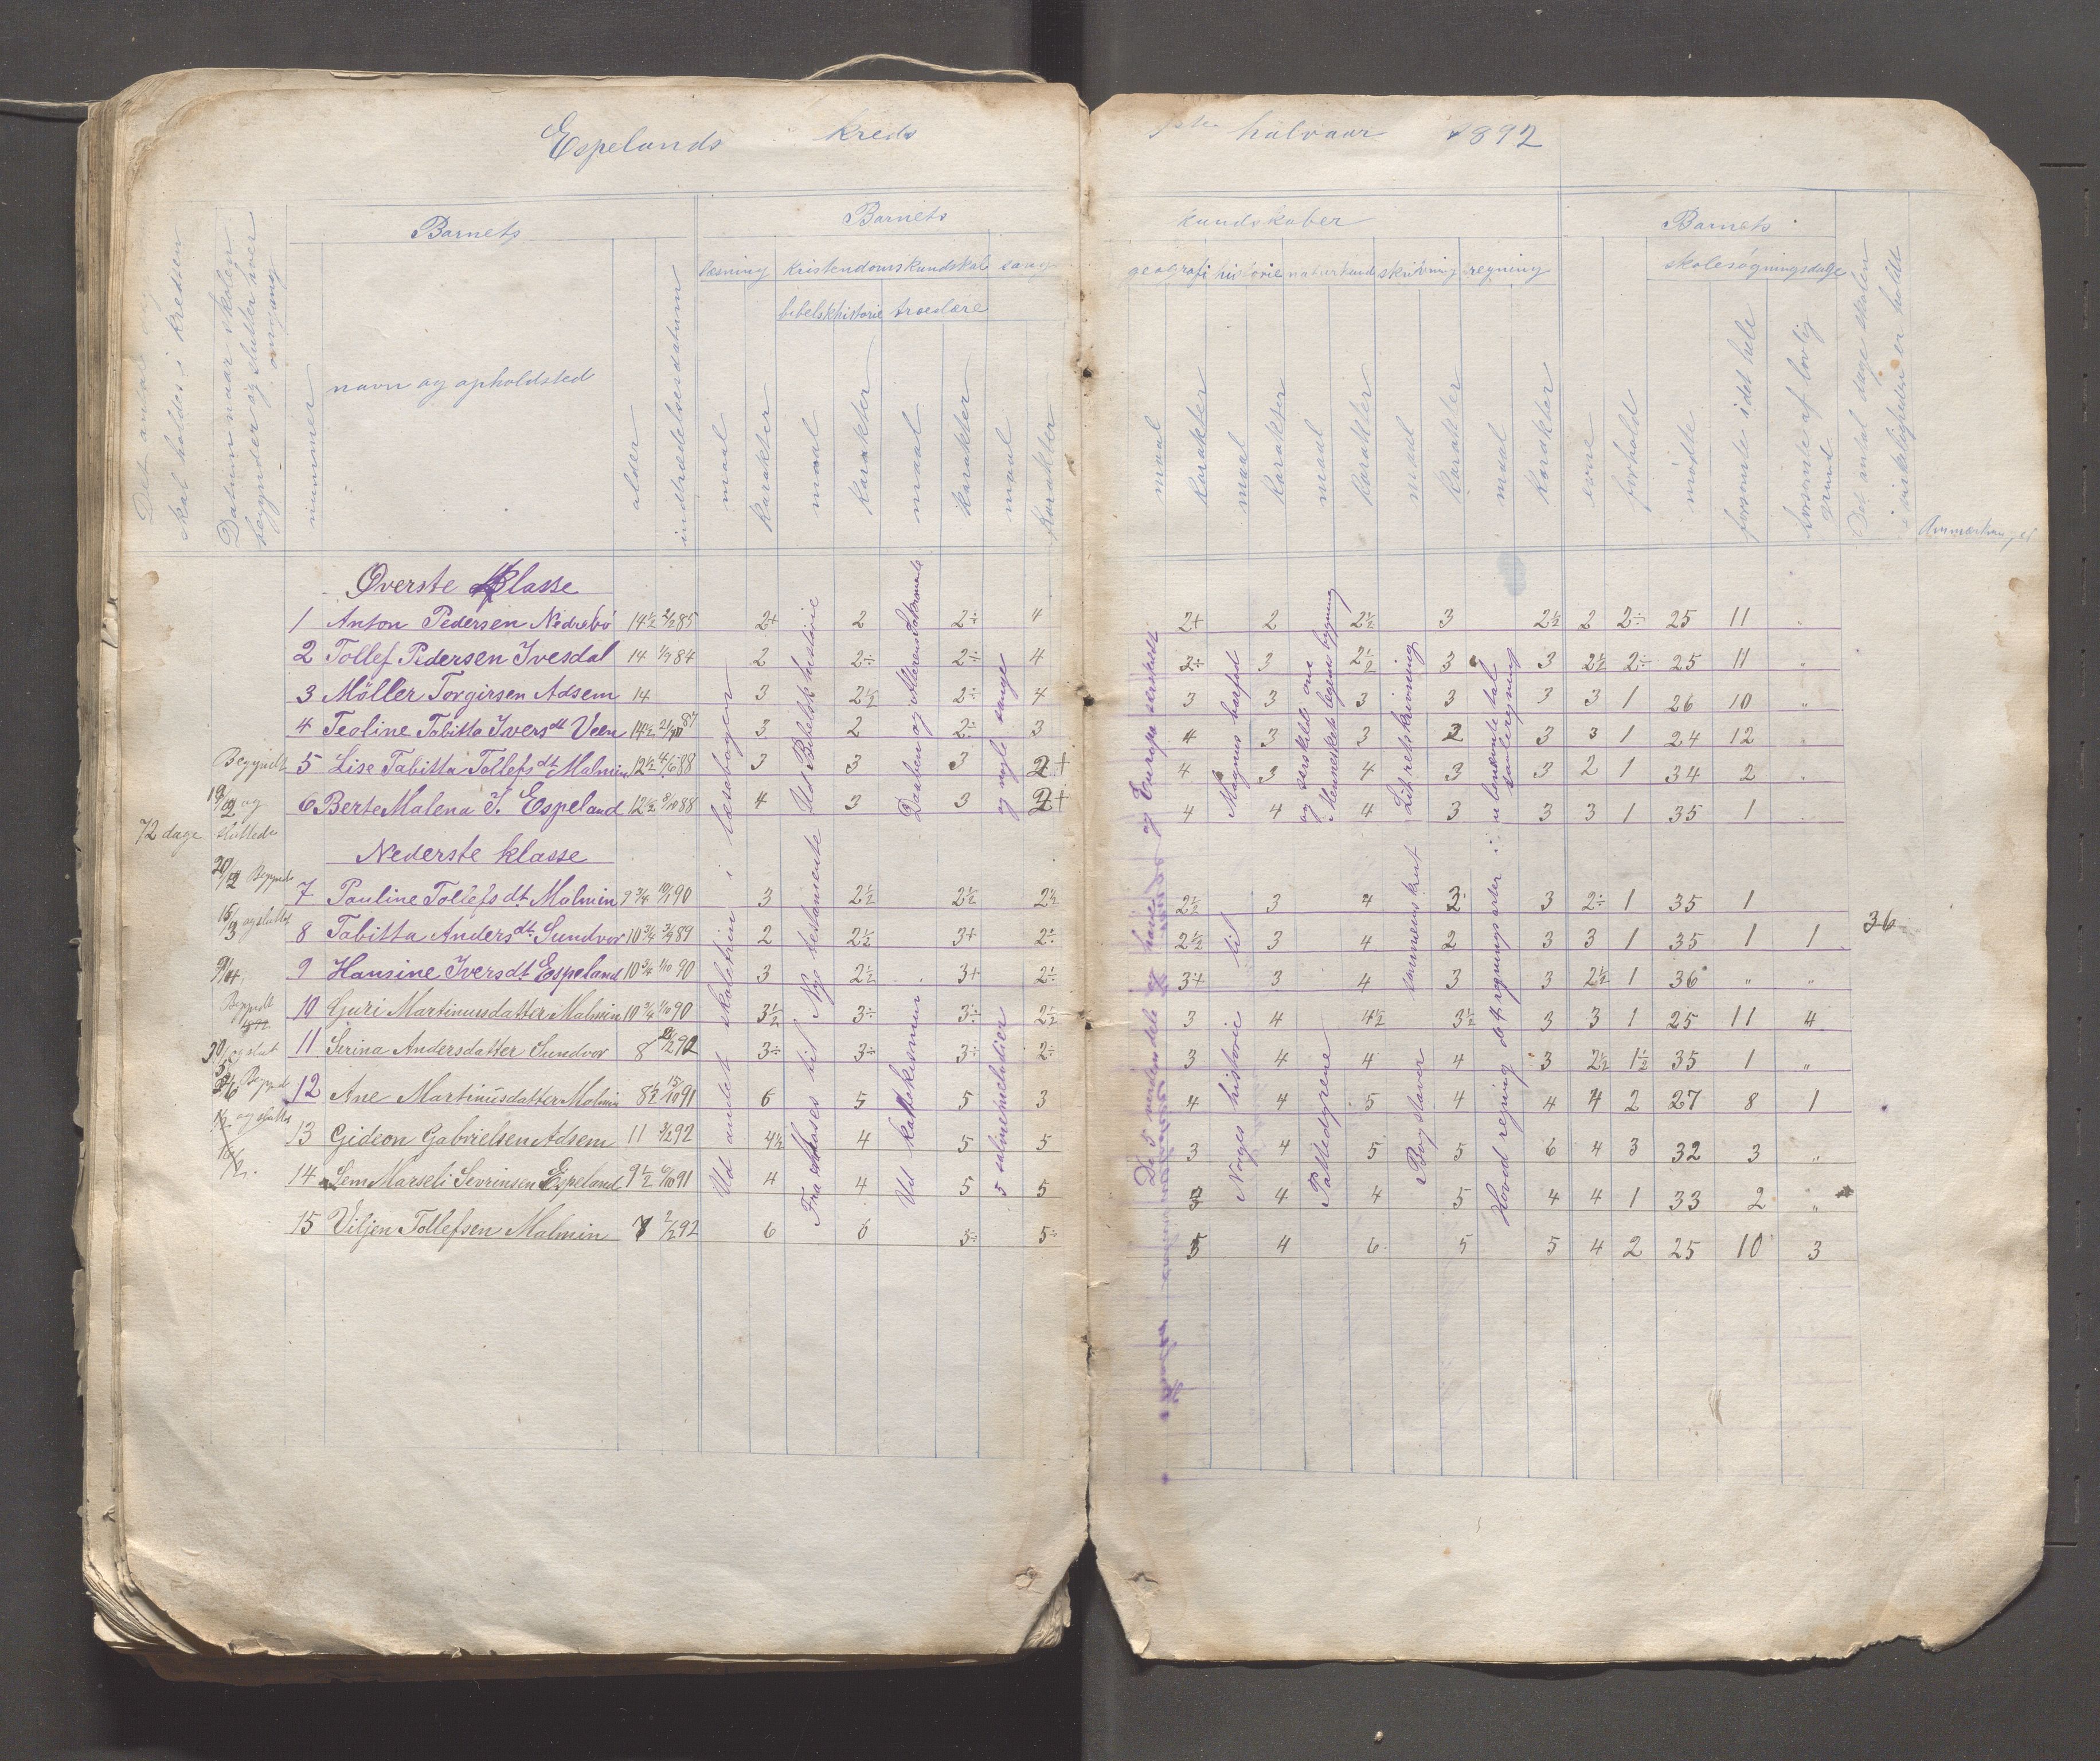 Espelands kreds 1ste halvaar 1892
Barnets
Barnets
kundskaber
Barnets
læsning kristendomskundskab sang
geografi historie naturkunde skrivning regning
skolesøgningsdage
bibelskhistorie troeslære
Det antal dage skal holdes i kredsen
Datum naar skolen begynder og slutter hver omgang
nummer
navn og opholdsted
alder
indtrædelsesdatum
maal
karakter
maal
karakter
maal
karakter
maal
karakter
maal
karakter
maal
karakter
maal
karakter
maal
karakter
maal
karakter
evne
forhold
mødte
forsømte i det hele
forsømte af lovlig grund
Det antal dage skolen i virkeligheden er holdt
Anmærkninger
Øverste Klasse
1 Anton Pedersen Nedrebø 14½ 2/2 85 2+ 2 2÷ 4 2+ 2 2½ 3 2½ 2 2÷ 25 11 "
2 Tollef Pedersen Ivesdal 14 1/9 84 2 2÷ 2÷ 4 2+ 3 2½ 3 3 2½ 2÷ 25 11 "
3 Möller Torgirsen Adsem 14 3 2½ 2÷ 4 3 3 3 3 3 3 1 26 10 "
4 Teoline Tabitta Iversdt Veen 14½ 87 3 2 2÷ 3 4 3 3 2 3 3 1 24 12 "
5 Lise Tabitta Tollefsdt Malmin 12½ 4/6 88 3 3 3 2+ 4 3 4 3 3 2 1 34 2 "
6 Berte Malena I. Espeland 12½ 8/10 88 4 3 3 2+ 4 4 4 3 3 3 1 35 1
Nederste klasse
7 Pauline Tollefsdt Malmin 9¾ 10/1 90 3 2½ 2½ 2½ 2½ 3 4 2 3 2÷ 1 35 1
8 Tabitta Andersdt. Sundvor 10¾ 3/9 89 2 2½ 3+ 2÷ 2½ 3 4 2 3 3 1 35 1 1
9 Hansine Iversdt Espeland 10¾ 1/10 90 3 2½ 3+ 2÷ 3+ 3 4 3 3 2½ 1 36 " "
10 Guri Martinusdatter Malmin 10¾ 1/10 90 3½ 3÷ 3÷ 2½ 3 4 4½ 3½ 3 3 1 25 11 4
11 Serina Andersdatter Sundvor 8 92 3÷ 3÷ 3÷ 2÷ 3 4 4 4 3 2½ 1½ 35 1 "
12 Ane Martinusdatter Malmin 8½ 15/10 91 6 5 5 3 4 4 5 4 4 4 2 27 8 1
13 Gideon Gabrielsen Adsem 11 3/2 92 4½ 4 5 5 3 4 5 5 6 4 3 32 3 "
14 Sem Marseli Sevrinsen Espeland 9½ 6/10 91 4 4 5 5 3 4 4 5 4 4 1 33 2 "
15 Viljen Tollefsen Malmin 7 2/2 92 6 6 5÷ 5÷ 5 4 6 5 5 4 2 25 10 3
72 dage
Begyndt 19/2 og sluttede
20/2 Begyndt
15/3 og sluttet
9/4
Begyndt
og slut
Begyndt
og sluttet
36
Ud andet skoletrin i læsebogen
Fra Moses til Nye testamente
Ud Bibelsk historie
Ud katekismen
Daaben og Alterens Sakramente
5 salmemelodier
og nogle sange
De 5 verdensdele og havene
og Europa særskilt
Norges historie til
Magnus barfod
Pattedyrene
og særskilt om
Menneskets legems bygning
Bogstaver
sammenskrut
Lit retskrivning
Hoved regning de 4 regningsarter i
ubenævnte tal
samleregning